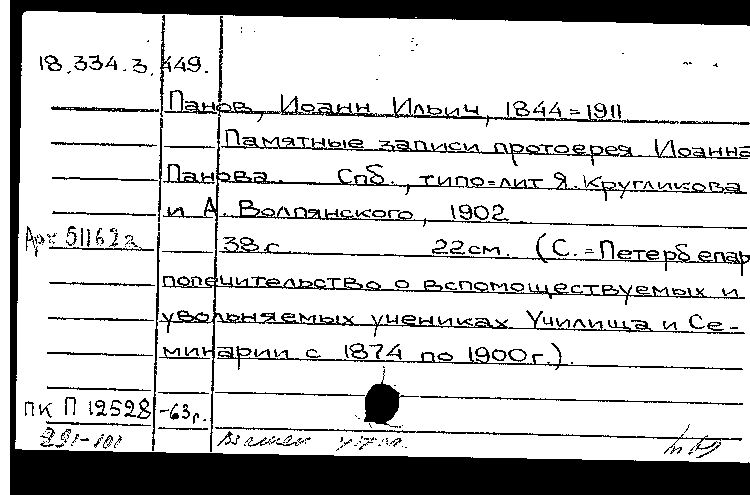 18.334.3.449.
Панов, Иоанн Ильич, 1844=1911
Памятные записи протоерея Иоанна
Панова. Спб., типо=лит Я. Кругликова
и А. Волпянского, 1902
38 с 22 см. (С.=Петерб епар
попечительство о вспомоществуемых и
увольняемых учениках Училища и Се-
минарии с 1874 по 1900 г.).
ПК П 12528 -63г.